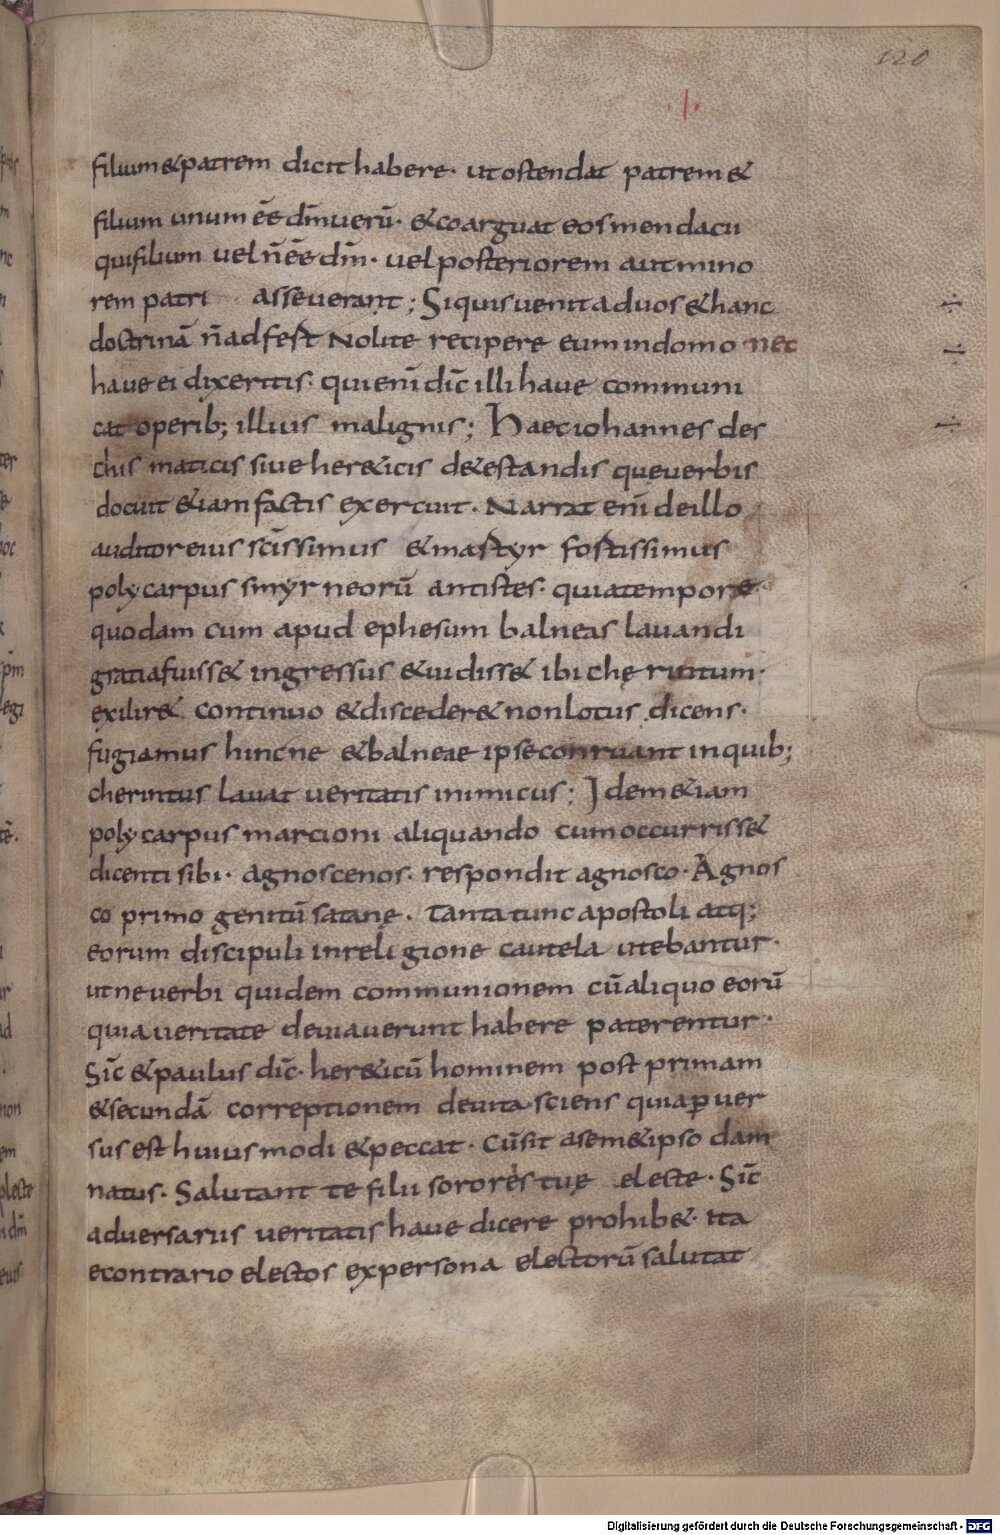 120
·|·
filium & patrem dicit habere· ut ostendat patrem &
filium unum ēē dm̄ uerū· & coarguat eos mendacii
qui filium uel n̄ ēē dm̄· uel posteriorem aut mino
rem patri asseuerant; Si quis uenit ad uos & hanc
doctrinā n̄ adfert Nolite recipere eum in domo nec
haue ei dixeritis· qui enī dic̄ illi haue communi
cat operib; illius malignis; Haec iohannes de s
chismaticis siue her&icis d&estandis que uerbis
docuit &iam factis exercuit· Narrat enī de illo
auditor eius sc̄issimus & martyr fortissimus
polycarpus smyrneorū antistes· quia tempore
quodam cum apud ephesum balneas lauandi
gratia fuiss& ingressus & uidiss& ibi cherintum·
exilir& continuo & disceder& non lotus dicens·
fugiamus hinc ne & balneae ipse conruant in quib;
cherintus lauat ueritatis inimicus; Idem &iam
polycarpus marcioni aliquando cum occurriss&
dicenti sibi· agnosce nos· respondit agnosco· Agnos
co primo genitū satanę· Tanta tunc apostoli atq;
eorum discipuli in religione cautela utebantur·
ut ne uerbi quidem communionem cū aliquo eorū
qui a ueritate deuiauerunt habere paterentur·
Sic̄ & paulus dic̄· her&icū hominem post primam
& secundā correptionem deuita· sciens quia ꝑuer
sus est huiusmodi & peccat· Cū sit a sem& ipso dam
natus· Salutant te filii sororis tuę electe· Sic̄
aduersariis ueritatis haue dicere prohib&· ita
econtrario electos ex persona electorū salutat
Digitalisierung gefördert durch die Deutsche Forschungsgemeinschaft - DFG